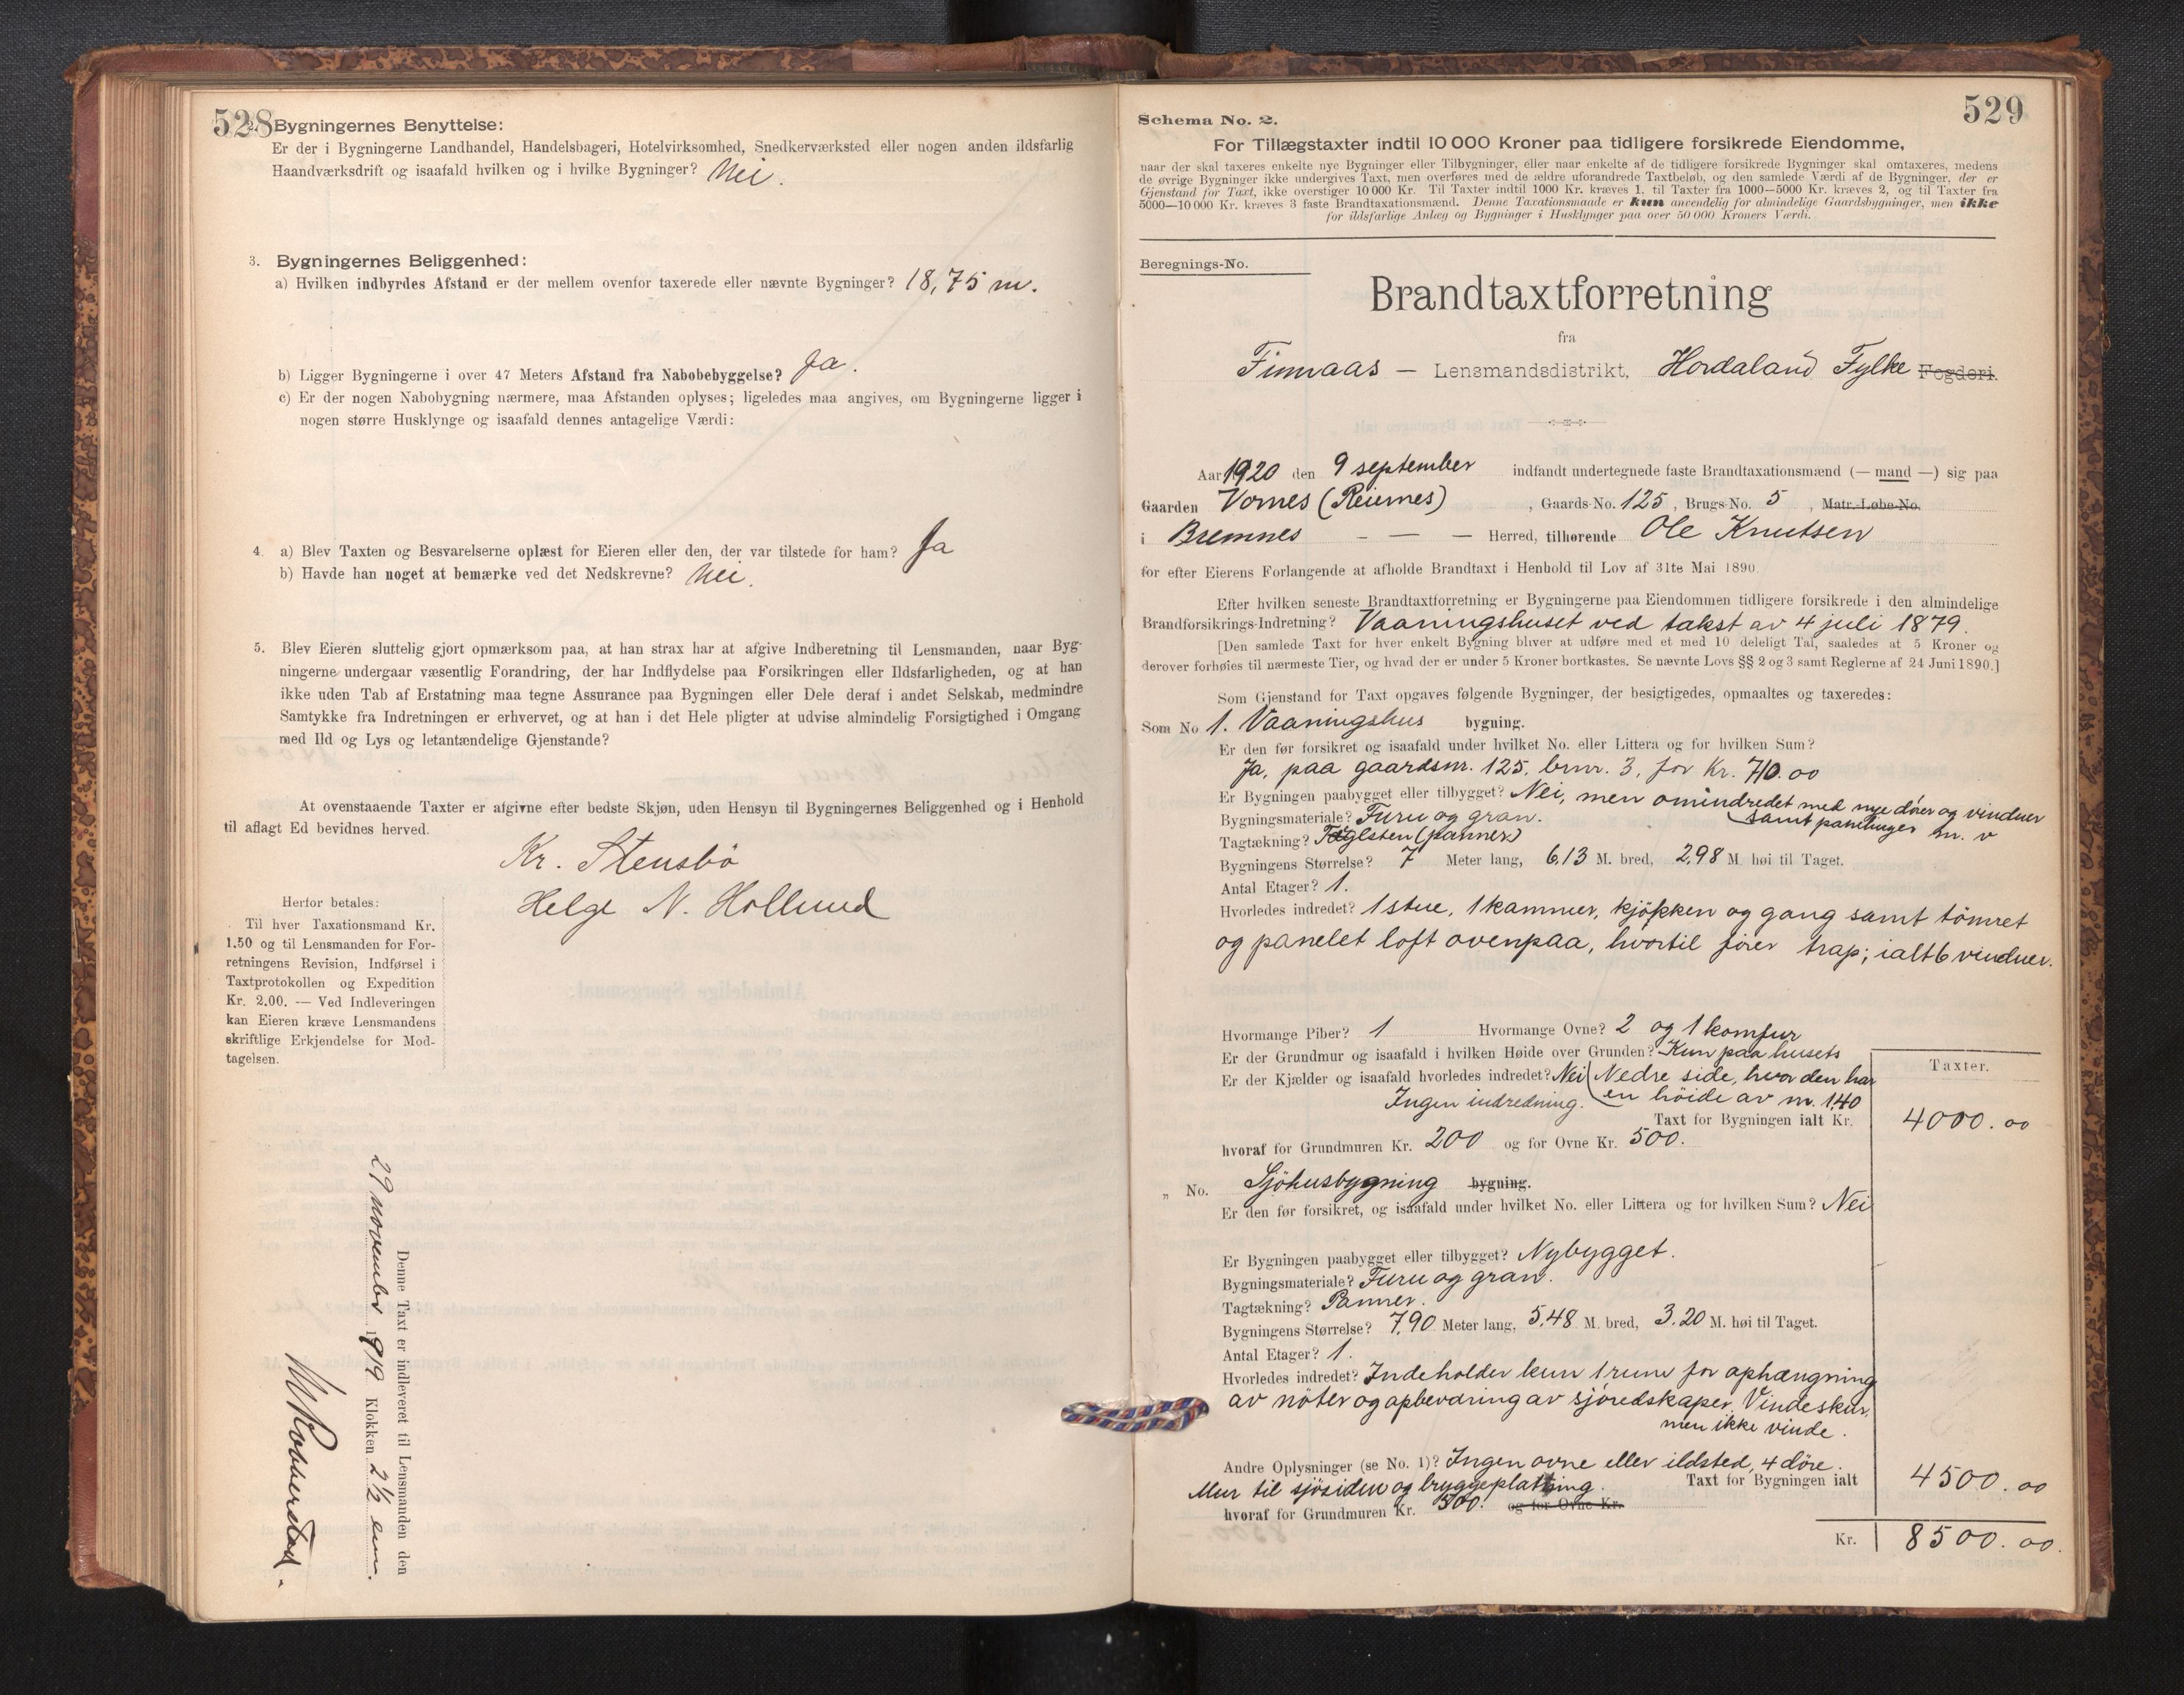 528
2. Bygningernes Benyttelse:
Er der i Bygningerne Landhandel, Handelsbageri, Hotelvirksomhed, Snedkerværksted eller nogen anden ildsfarlig
Haandværksdrift og isaafald hvilken og i hvilke Bygninger? Nei.
3. Bygningernes Beliggenhed:
a) Hvilken indbyrdes Afstand er der mellem ovenfor taxerede eller nævnte Bygninger? 18,75 m.
b) Ligger Bygningerne i over 47 Meters Afstand fra Nabobebyggelse? Ja.
c) Er der nogen Nabobygning nærmere, maa Afstanden oplyses; ligeledes maa angives, om Bygningerne ligger i
nogen større Husklynge og isaafald dennes antagelige Værdi:
4. a) Blev Taxten og Besvarelserne oplæst for Eieren eller den, der var tilstede for ham? Ja
b) Havde han noget at bemærke ved det Nedskrevne? Nei.
5. Blev Eieren sluttelig gjort opmærksom paa, at han strax har at afgive Indberetning til Lensmanden, naar Byg-
ningerne undergaar væsentlig Forandring, der har Indflydelse paa Forsikringen eller Ildsfarligheden, og at han
ikke uden Tab af Erstatning maa tegne Assurance paa Bygningen eller Dele deraf i andet Selskab, medmindre
Samtykke fra Indretningen er erhvervet, og at han i det Hele pligter at udvise almindelig Forsigtighed i Omgang
med Ild og Lys og letantændelige Gjenstande?
At ovenstaaende Taxter er afgivne efter bedste Skjøn, uden Hensyn til Bygningernes Beliggenhed og i Henhold
til aflagt Ed bevidnes herved.
Kr. Stensbö
Helge N. Hollund
Herfor betales:
Til hver Taxationsmand Kr.
1.50 og til Lensmanden for For-
retningens Revision, Indførsel i
Taxtprotokollen og Expedition
Kr. 2.00. — Ved Indleveringen
kan Eieren kræve Lensmandens
skriftlige Erkjendelse for Mod-
tagelsen.
Denne Taxt er indleveret til Lensmanden den
29 november 1919 Klokken 2½ em.
M Robberstad.
529
Schema No. 2.
For Tillægstaxter indtil 10 000 Kroner paa tidligere forsikrede Eiendomme,
naar der skal taxeres enkelte nye Bygninger eller Tilbygninger, eller naar enkelte af de tidligere forsikrede Bygninger skal omtaxeres, medens
de øvrige Bygninger ikke undergives Taxt, men overføres med de ældre uforandrede Taxtbeløb, og den samlede Værdi af de Bygninger, der er
Gjenstand for Taxt, ikke overstiger 10 000 Kr. Til Taxter indtil 1000 Kr. kræves 1, til Taxter fra 1000—5000 Kr. kræves 2, og til Taxter fra
5000—10 000 Kr. kræves 3 faste Brandtaxationsmænd. Denne Taxationsmaade er kun anvendelig for almindelige Gaardsbygninger, men ikke
for ildsfarlige Anlæg og Bygninger i Husklynger paa over 50 000 Kroners Værdi.
Beregnings-No.
Brandtaxtforretning
fra
Finnaas — Lensmandsdistrikt, Hordaland Fylke Fogderi.
Aar 1920 den 9 september indfandt undertegnede faste Brandtaxationsmænd (— mand —) sig paa
Gaarden Vornes (Reiernes), Gaards-No. 125, Brugs-No. 5, Matr.-Løbe-No.
i Bremnes - — — Herred, tilhørende Ole Knutsen
for efter Eierens Forlangende at afholde Brandtaxt i Henhold til Lov af 31te Mai 1890.
Efter hvilken seneste Brandtaxtforretning er Bygningerne paa Eiendommen tidligere forsikrede i den almindelige
Brandforsikrings-Indretning? Vaaningshuset ved takst av 4 juli 1879.
[Den samlede Taxt for hver enkelt Bygning bliver at udføre med et med 10 deleligt Tal, saaledes at 5 Kroner og
derover forhøies til nærmeste Tier, og hvad der er under 5 Kroner bortkastes. Se nævnte Lovs §§ 2 og 3 samt Reglerne af 24 Juni 1890.]
Som Gjenstand for Taxt opgaves følgende Bygninger, der besigtigedes, opmaaltes og taxeredes:
Som No 1. Vaaningshus bygning.
Er den før forsikret og isaafald under hvilket No. eller Littera og for hvilken Sum?
Ja, paa gaardsnr. 125, brnr. 3, for Kr. 710.00
Er Bygningen paabygget eller tilbygget? Nei, men omindredet med nye dører og vinduer
samt panelinger m. v
Bygningsmateriale? Furu og gran.
Tagtækning? Tæglsten (panner)
Bygningens Størrelse? 7 Meter lang, 6,13 M. bred, 2,98 M. høi til Taget.
Antal Etager? 1.
Hvorledes indredet? 1 stue, 1 kammer, kjökken og gang samt tömret
og panelet loft ovenpaa, hvortil fører trap; ialt 6 vinduer.
Hvormange Piber? 1 Hvormange Ovne? 2 og 1 komfur
Er der Grundmur og isaafald i hvilken Høide over Grunden? Kun paa husets
Er der Kjælder og isaafald hvorledes indredet? Nei (Nedre side, hvor den har
Ingen indredning. en höide av m. 1,40
Taxter.
Taxt for Bygningen ialt Kr. 4000.00
hvoraf for Grundmuren Kr. 200 og for Ovne Kr. 500.
„ No. Sjöhusbygning bygning.
Er den før forsikret, og isaafald under hvilket No. eller Littera og for hvilken Sum? Nei
Er Bygningen paabygget eller tilbygget? Nybygget.
Bygningsmateriale? Furu og gran.
Tagtækning? Panner.
Bygningens Størrelse? 7,90 Meter lang, 5,48 M. bred, 3.20 M. høi til Taget.
Antal Etager? 1.
Hvorledes indredet? Indeholder kun 1 rum for ophængning
av nöter og opbevaring av sjöredskaper. Vindeskur,
men ikke vinde.
Andre Oplysninger (se No. 1)? Ingen ovne eller ildsted, 4 döre.
Mur til sjösiden og bryggeplatting. Taxt for Bygningen ialt 4500.00
hvoraf for Grundmuren Kr. 500. og for Ovne Kr.
Kr. 8500.00.